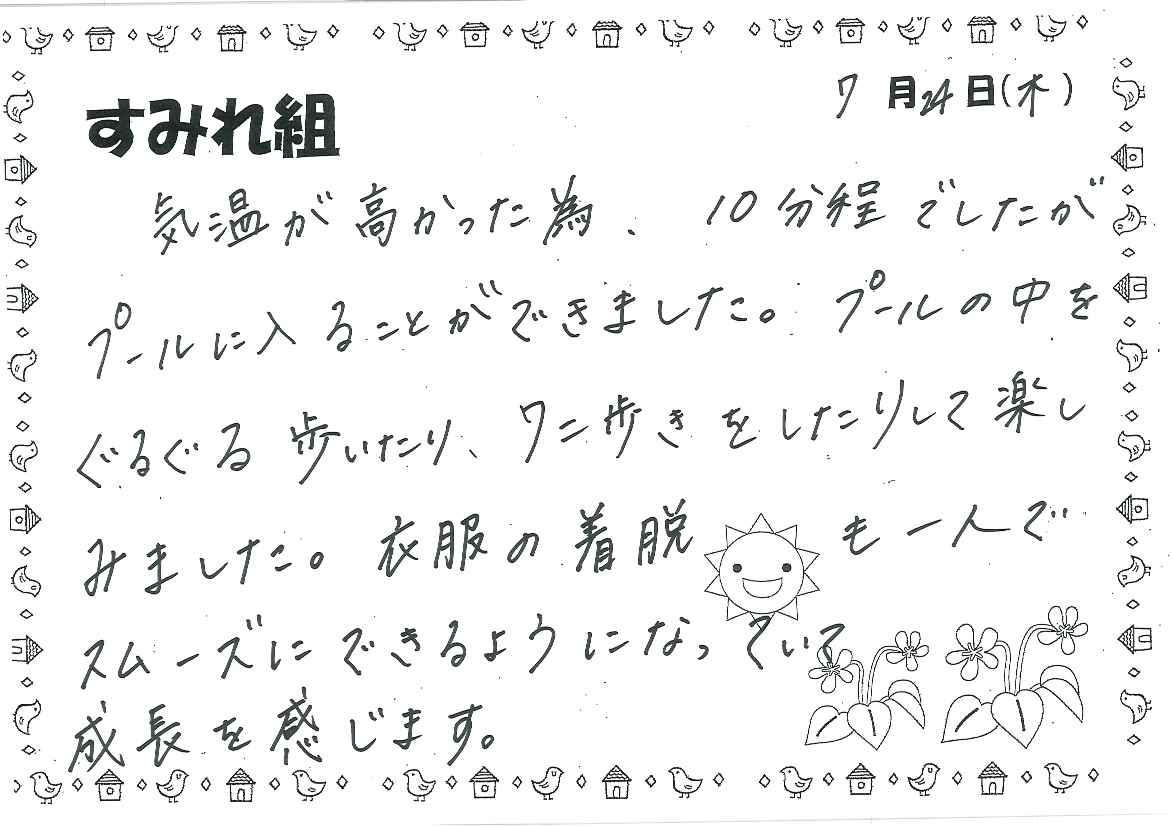 7月24日(木)
すみれ組
気温が高かった為、10分程でしたが
プールに入ることができました。プールの中を
ぐるぐる歩いたり、ワニ歩きをしたりして楽し
みました。衣服の着脱も一人で
スムーズにできるようになっていて
成長を感じます。